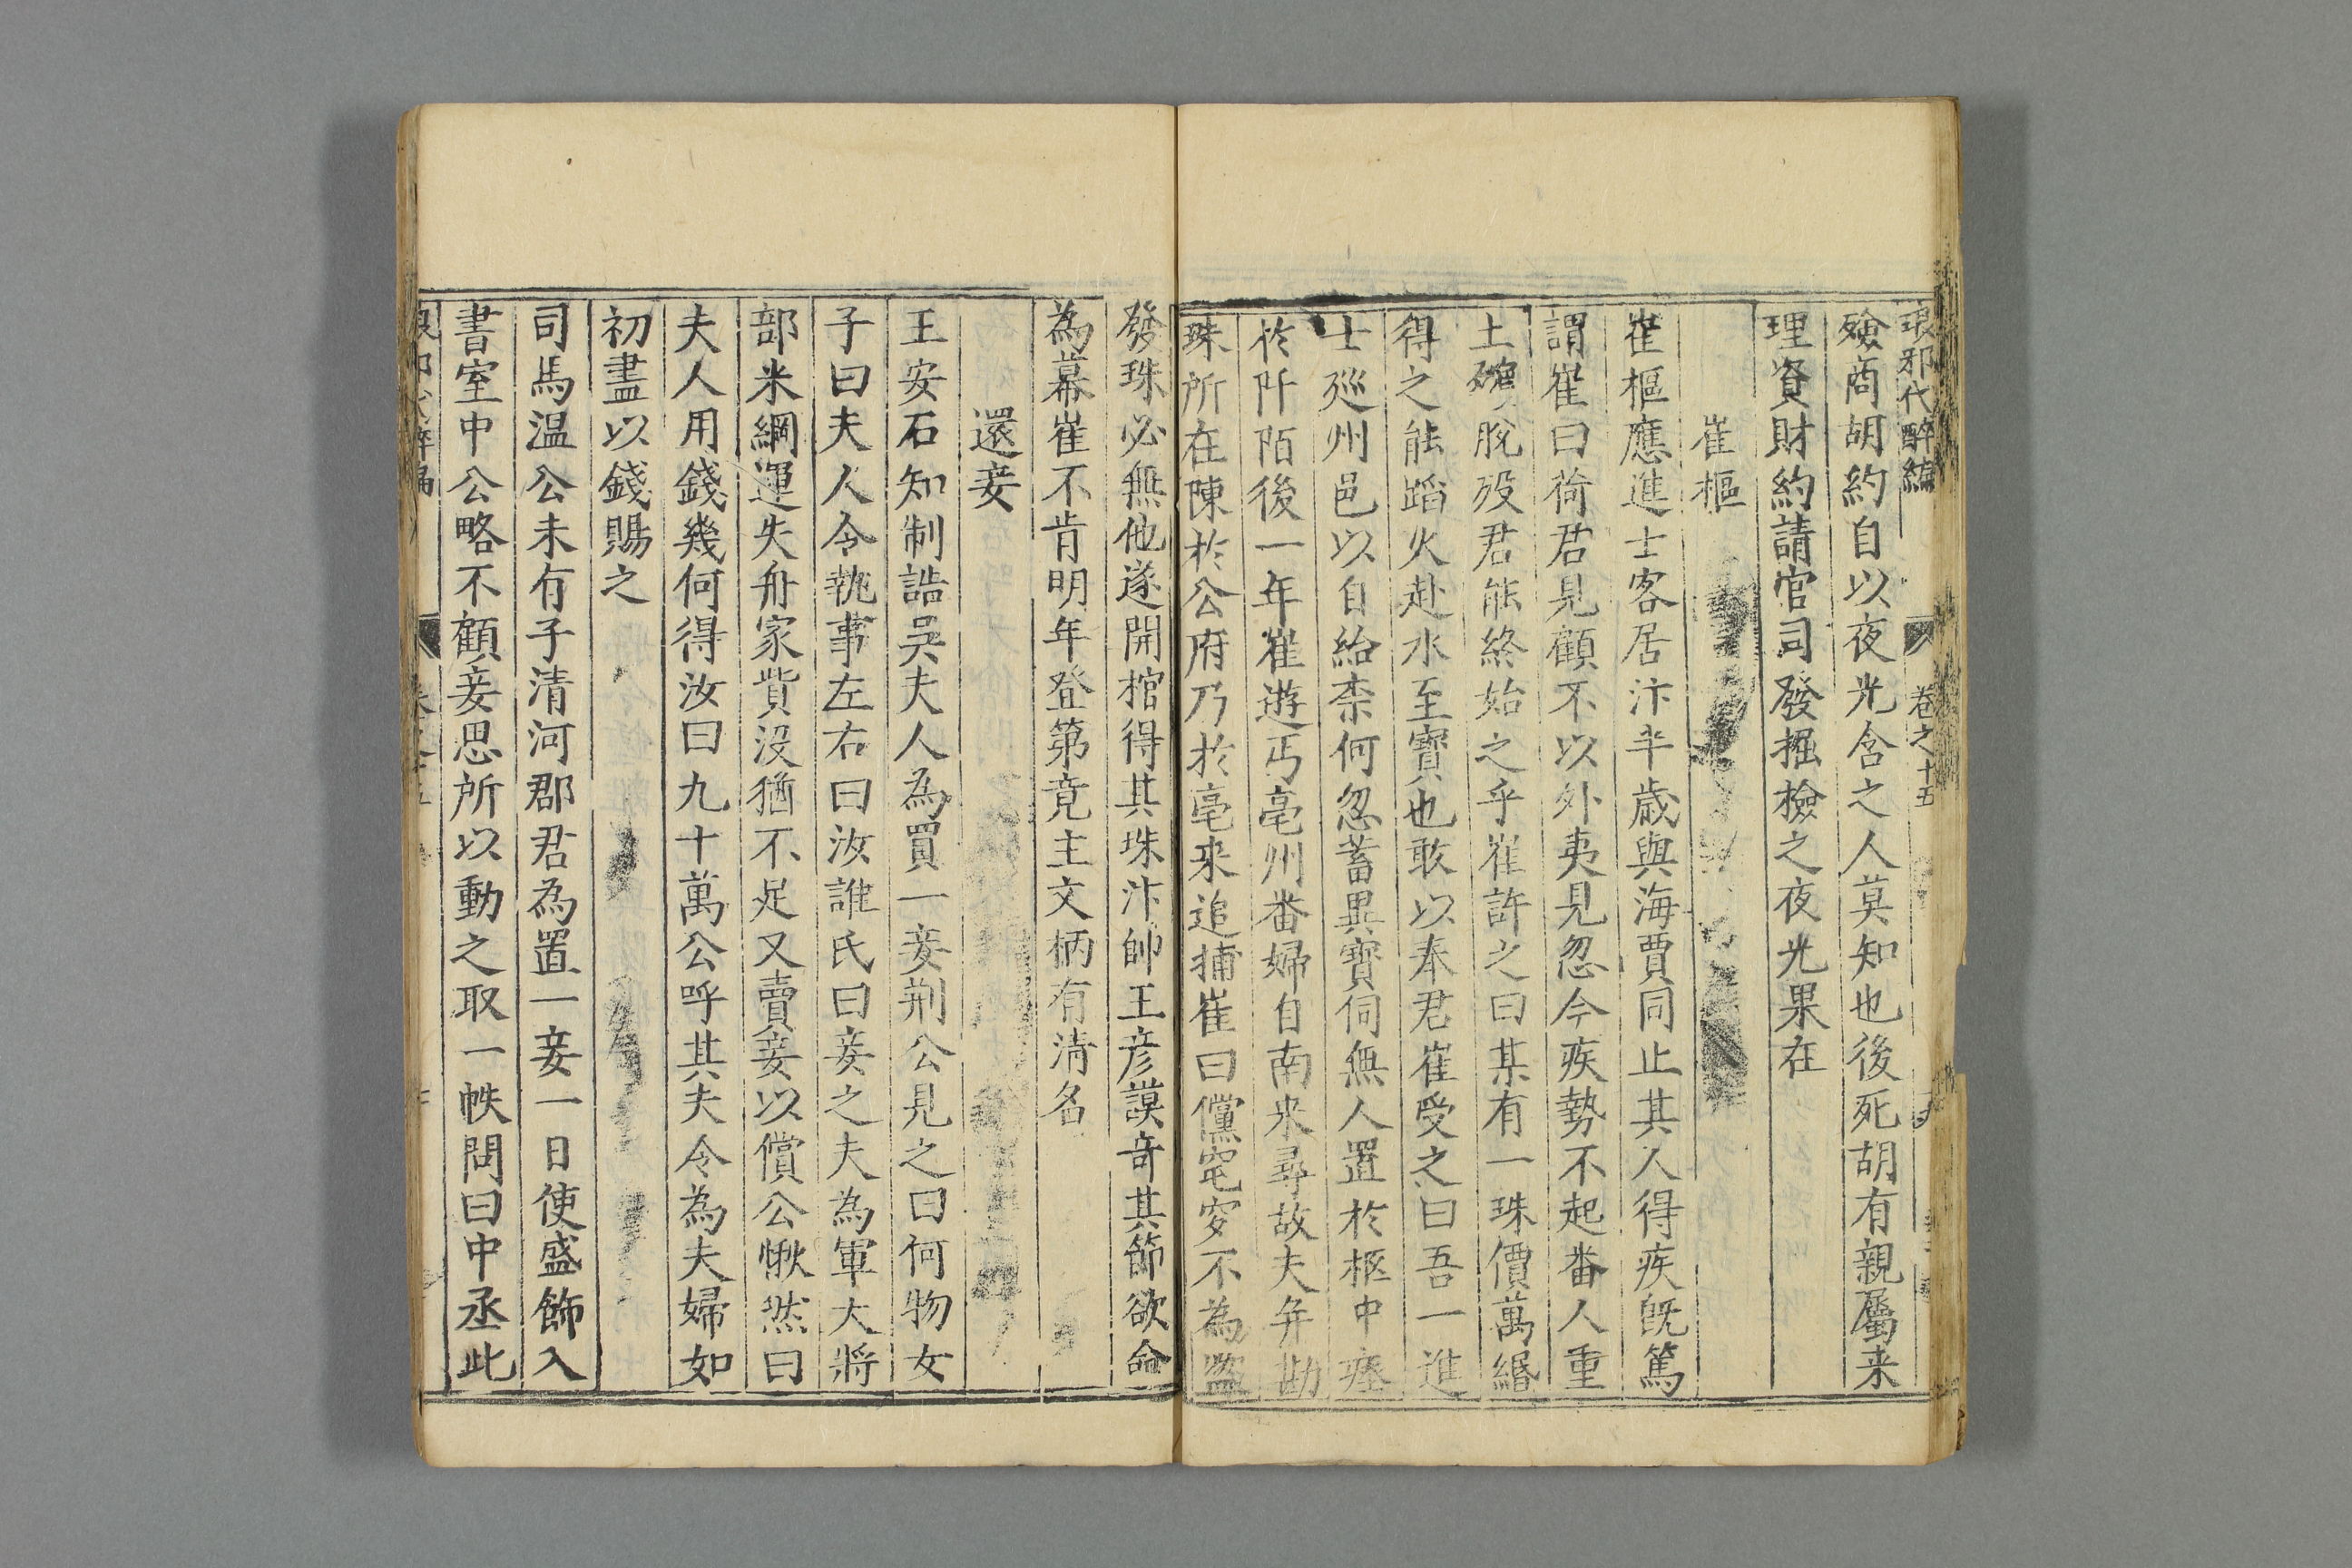 琅邪代醉編 卷之十五
殮商胡約自以夜光含之人莫知也後死胡有親屬来
理資財約請官司發掘檢之夜光果在
崔樞
崔樞應進士客居汴半歳與海賈同止其人得疾既篤
謂崔曰荷君見顧不以外夷見忽今疾勢不起番人重
土殯脫歿君能終始之乎崔許之曰某有一珠價萬緡
得之能蹈火赴水至寶也敢以奉君崔受之曰吾一進
士廵州邑以自給柰何忽蓄異寶伺無人置於柩中瘞
於阡陌後一年崔遊丐亳州番婦自南来尋故夫并勘
珠所在陳於公府乃於亳来追捕崔曰儻窀穸不為盜
發珠必無他遂開棺得其珠汴帥王彦謨奇其節欲命
為幕崔不肯明年登第竟主文柄有清名
還妾
王安石知制誥吳夫人為買一妾荆公見之曰何物女
子曰夫人令執事左右曰汝誰氏曰妾之夫為軍大將
部米綱運失舟家貲没猶不足又賣妾以償公愀然曰
夫人用錢幾何得汝曰九十萬公呼其夫令為夫婦如
初盡以錢賜之
司馬温公未有子清河郡君為置一妾一日使盛飾入
書室中公略不顧妾思所以動之取一帙問曰中丞此